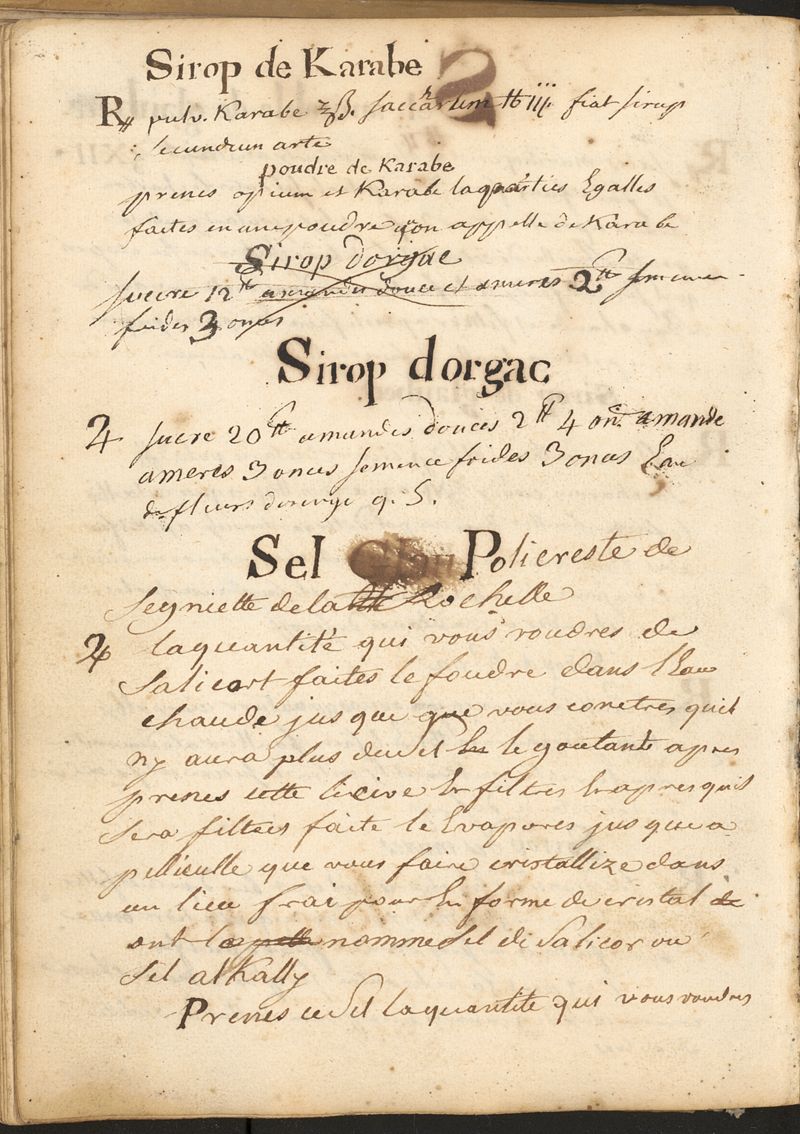 Sirop de Karabe
R pulv. Karabe ℥ß. saccarum ℔ iij. fiat sirup
secundum arte
poudre de Karabe
prenes opium et Karabe la parties Egalles
faites en une poudre qon appelle de Karabe
Sirop dorgac
sucre 12 ℔ amandes douce et ameres 2 ℔ semence
froides 3 onces
Sirop dorgac
♃ sucre 20 ℔ amandes douces 2 ℔ 4 on. amande
ameres 3 onces semence froides 3 onces Eau
de fleurs dorenge q. S.
Sel Policreste de
Segniette de la Rochelle
♃ la quantité qui vous voudres de
Salicort faites le foudre dans lEau
chaude jus que que vous conetres quil
ny aura plus du sel En le goutant apres
prenes cette licive Et filtres Et apres quil
Sera filtrees faite le Evapores jus que a
pellieulle que vous faire cristallize dans
un lieu frai pour En forme de cristal de
ont la nomme Sel de Salicor ou
Sel alKally
Prenes ce Sel la quantite qui vous voudres